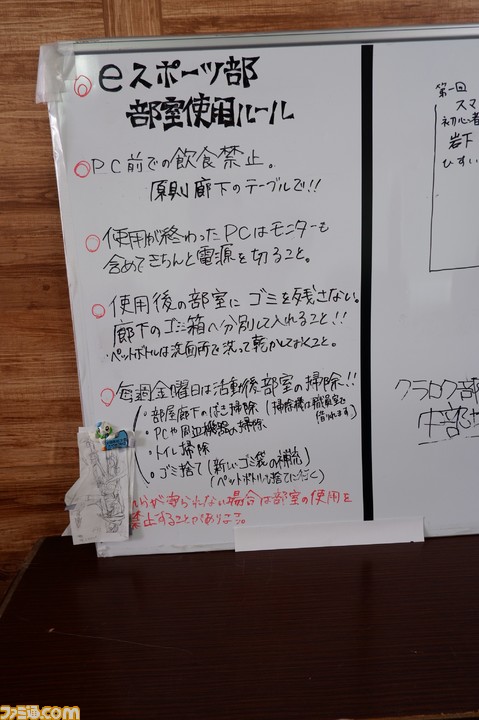 eスポーツ部
部室使用ルール
PC前での飲食禁止。
原則廊下のテーブルで!!
使用が終わったPCはモニターも
含めてきちんと電源を切ること。
使用後の部室にゴミを残さない。
廊下のゴミ箱へ分別して入れること!!
・ペットボトルは洗面所で洗って乾かしておくこと。
毎週金曜日は活動後部室の掃除!!
・部屋廊下のはき掃除(掃除機は職員室で
借れます)
・PCや周辺機器の掃除
・トイレ掃除
・ゴミ捨て(新しいゴミ袋の補充)
(ペットボトルも捨てに行く)
らが守られない場合は部室の使用を
禁止することがあります。
第一回
スマ
初心者
岩下
ひすい
クラロワ部
中部
ファミ通.com